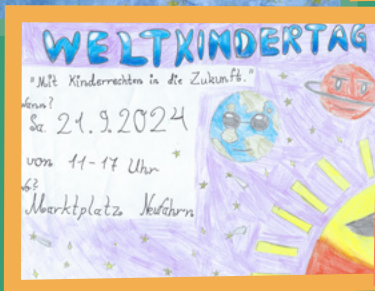 WELTKINDERTAG
"Mit Kinderrechten in die Zukunft."
Wann?
Sa. 21.9.2024
von 11-17 Uhr
Marktplatz Neufahrn